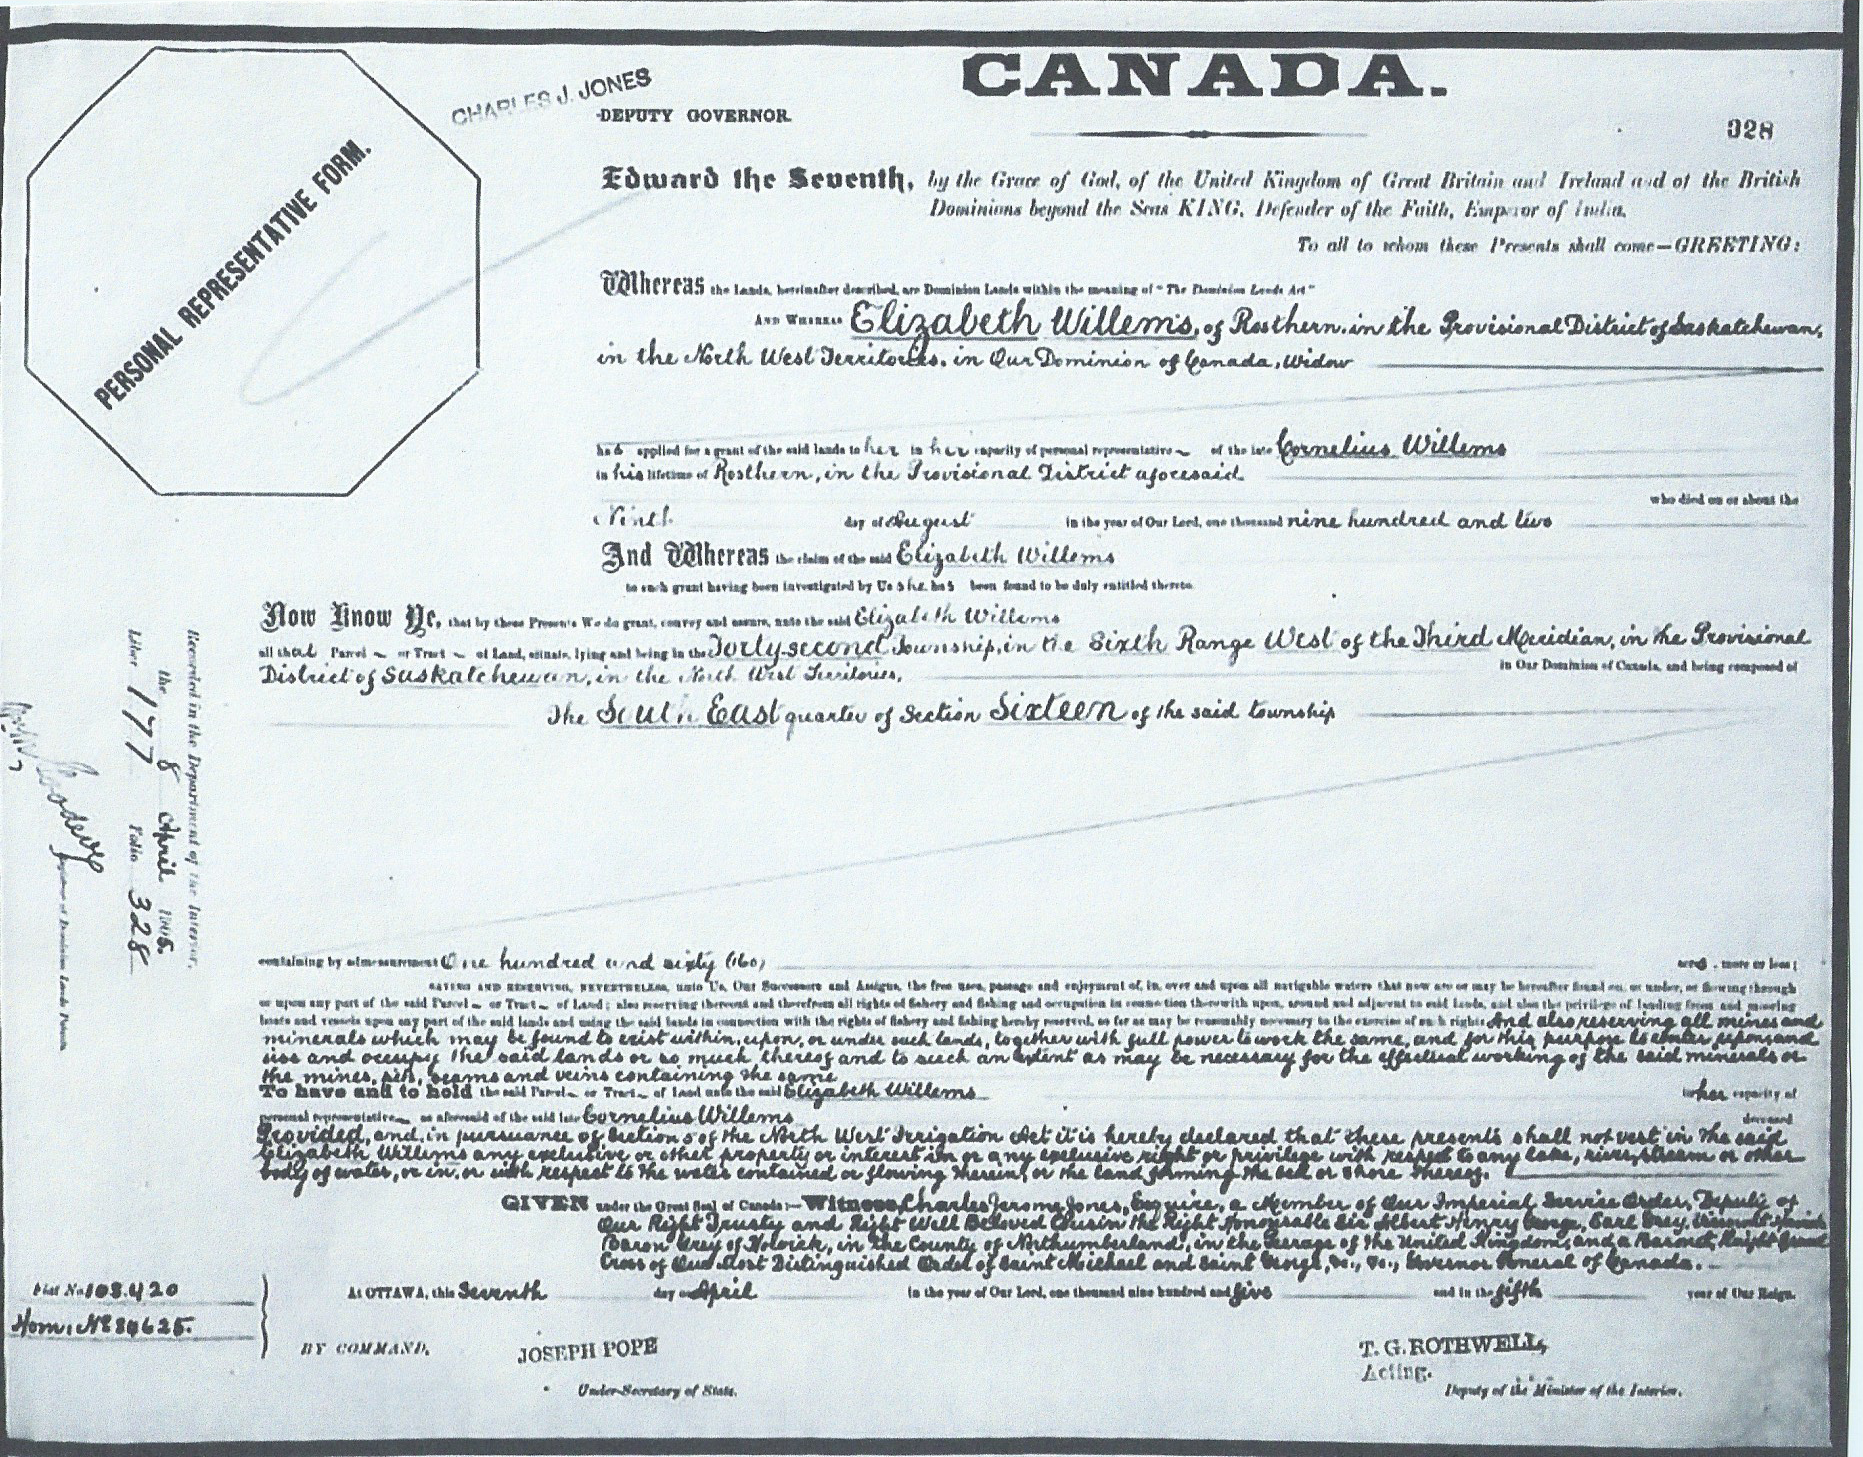 CANADA.
CHARLES J. JONES
DEPUTY GOVERNOR.
328
PERSONAL REPRESENTATIVE FORM.
Edward the Seventh, by the Grace of God, of the United Kingdom of Great Britain and Ireland and of the British
Dominions beyond the Seas KING, Defender of the Faith, Emperor of India.
To all to whom these Presents shall come—GREETING:
Whereas the Lands, hereinafter described, are Dominion Lands within the meaning of "The Dominion Lands Act"
AND WHEREAS Elizabeth Willems, of Rosthern, in the Provisional District of Saskatchewan,
in the North West Territories, in Our Dominion of Canada, Widow
has applied for a grant of the said lands to her in her capacity of personal representative of the late Cornelius Willems
in his lifetime of Rosthern, in the Provisional District aforesaid.
who died on or about the
Ninth day of August in the year of Our Lord, one thousand nine hundred and two
And Whereas the claim of the said Elizabeth Willems
to such grant having been investigated by Us she has been found to be duly entitled thereto.
Now Know Ye, that by these Presents We do grant, convey and assure, unto the said Elizabeth Willems
all that Parcel or Tract of Land, situate, lying and being in the Forty-second Township, in the Sixth Range West of the Third Meridian, in the Provisional
District of Saskatchewan, in the North West Territories, in Our Dominion of Canada, and being composed of
The South East quarter of Section Sixteen of the said township
containing by admeasurement One hundred and sixty (160) acres, more or less;
SAVING AND RESERVING, NEVERTHELESS, unto Us, Our Successors and Assigns, the free uses, passage and enjoyment of, in, over and upon all navigable waters that now are or may be hereafter found on, or under, or flowing through
or upon any part of the said Parcel or Tract of Land; also reserving thereout and therefrom all rights of fishery and fishing and occupation in connection therewith upon, around and adjacent to said lands, and also the privilege of landing from and mooring
boats and vessels upon any part of the said lands and using the said lands in connection with the rights of fishery and fishing hereby reserved, so far as may be reasonably necessary to the exercise of such rights And also reserving all mines and
minerals which may be found to exist within, upon, or under such lands, together with full power to work the same, and for this purpose to enter upon and
use and occupy the said lands or so much thereof and to such an extent as may be necessary for the effectual working of the said minerals or
the mines, pits, seams and veins containing the same
To have and to hold the said Parcel or Tract of Land unto the said Elizabeth Willems in her capacity of
personal representative as aforesaid of the said late Cornelius Willems deceased
Provided, and, in pursuance of Section 5 of the North West Irrigation Act it is hereby declared that these presents shall not vest in the said
Elizabeth Willems any exclusive or other property or interest in or any exclusive right or privilege with respect to any lake, river, stream or other
body of water, or in, or with respect to the water contained or flowing therein, or the land forming the bed or shore thereof.
GIVEN under the Great Seal of Canada:—Witness, Charles Jerome Jones, Esquire, a Member of Our Imperial Service Order, Deputy of
Our Right Trusty and Right Well Beloved Cousin the Right Honourable Sir Albert Henry George, Earl Grey, Viscount Howick
Baron Grey of Howick, in the County of Northumberland, in the Peerage of the United Kingdom, and a Baronet, Knight Grand
Cross of Our Most Distinguished Order of Saint Michael and Saint George, &c., &c., Governor General of Canada.
At OTTAWA, this Seventh day of April in the year of Our Lord, one thousand nine hundred and five and in the fifth year of Our Reign.
BY COMMAND,
JOSEPH POPE
Under-Secretary of State.
T. G. ROTHWELL,
Acting.
Deputy of the Minister of the Interior.
Fiat No. 108420
Hom. No 84625.
Recorded in the Department of the Interior,
the 8 April 1905.
Liber 177 Folio 328
of Dominion Lands Patents